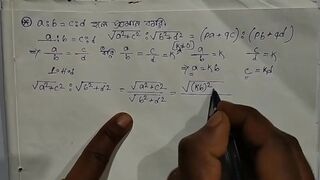 * a:b = c:d হলে প্রমাণ করো: √a²+c² : √b²+d² = (pa+qc) : (pb+qd)
⇒ a/b = c/d ধরি a/b = c/d = K (K≠0) a/b = K c/d = K
⇒ a = Kb c = Kd
L.H.S
√a²+c² : √b²+d² = √a²+c² / √b²+d² = √(Kb)²